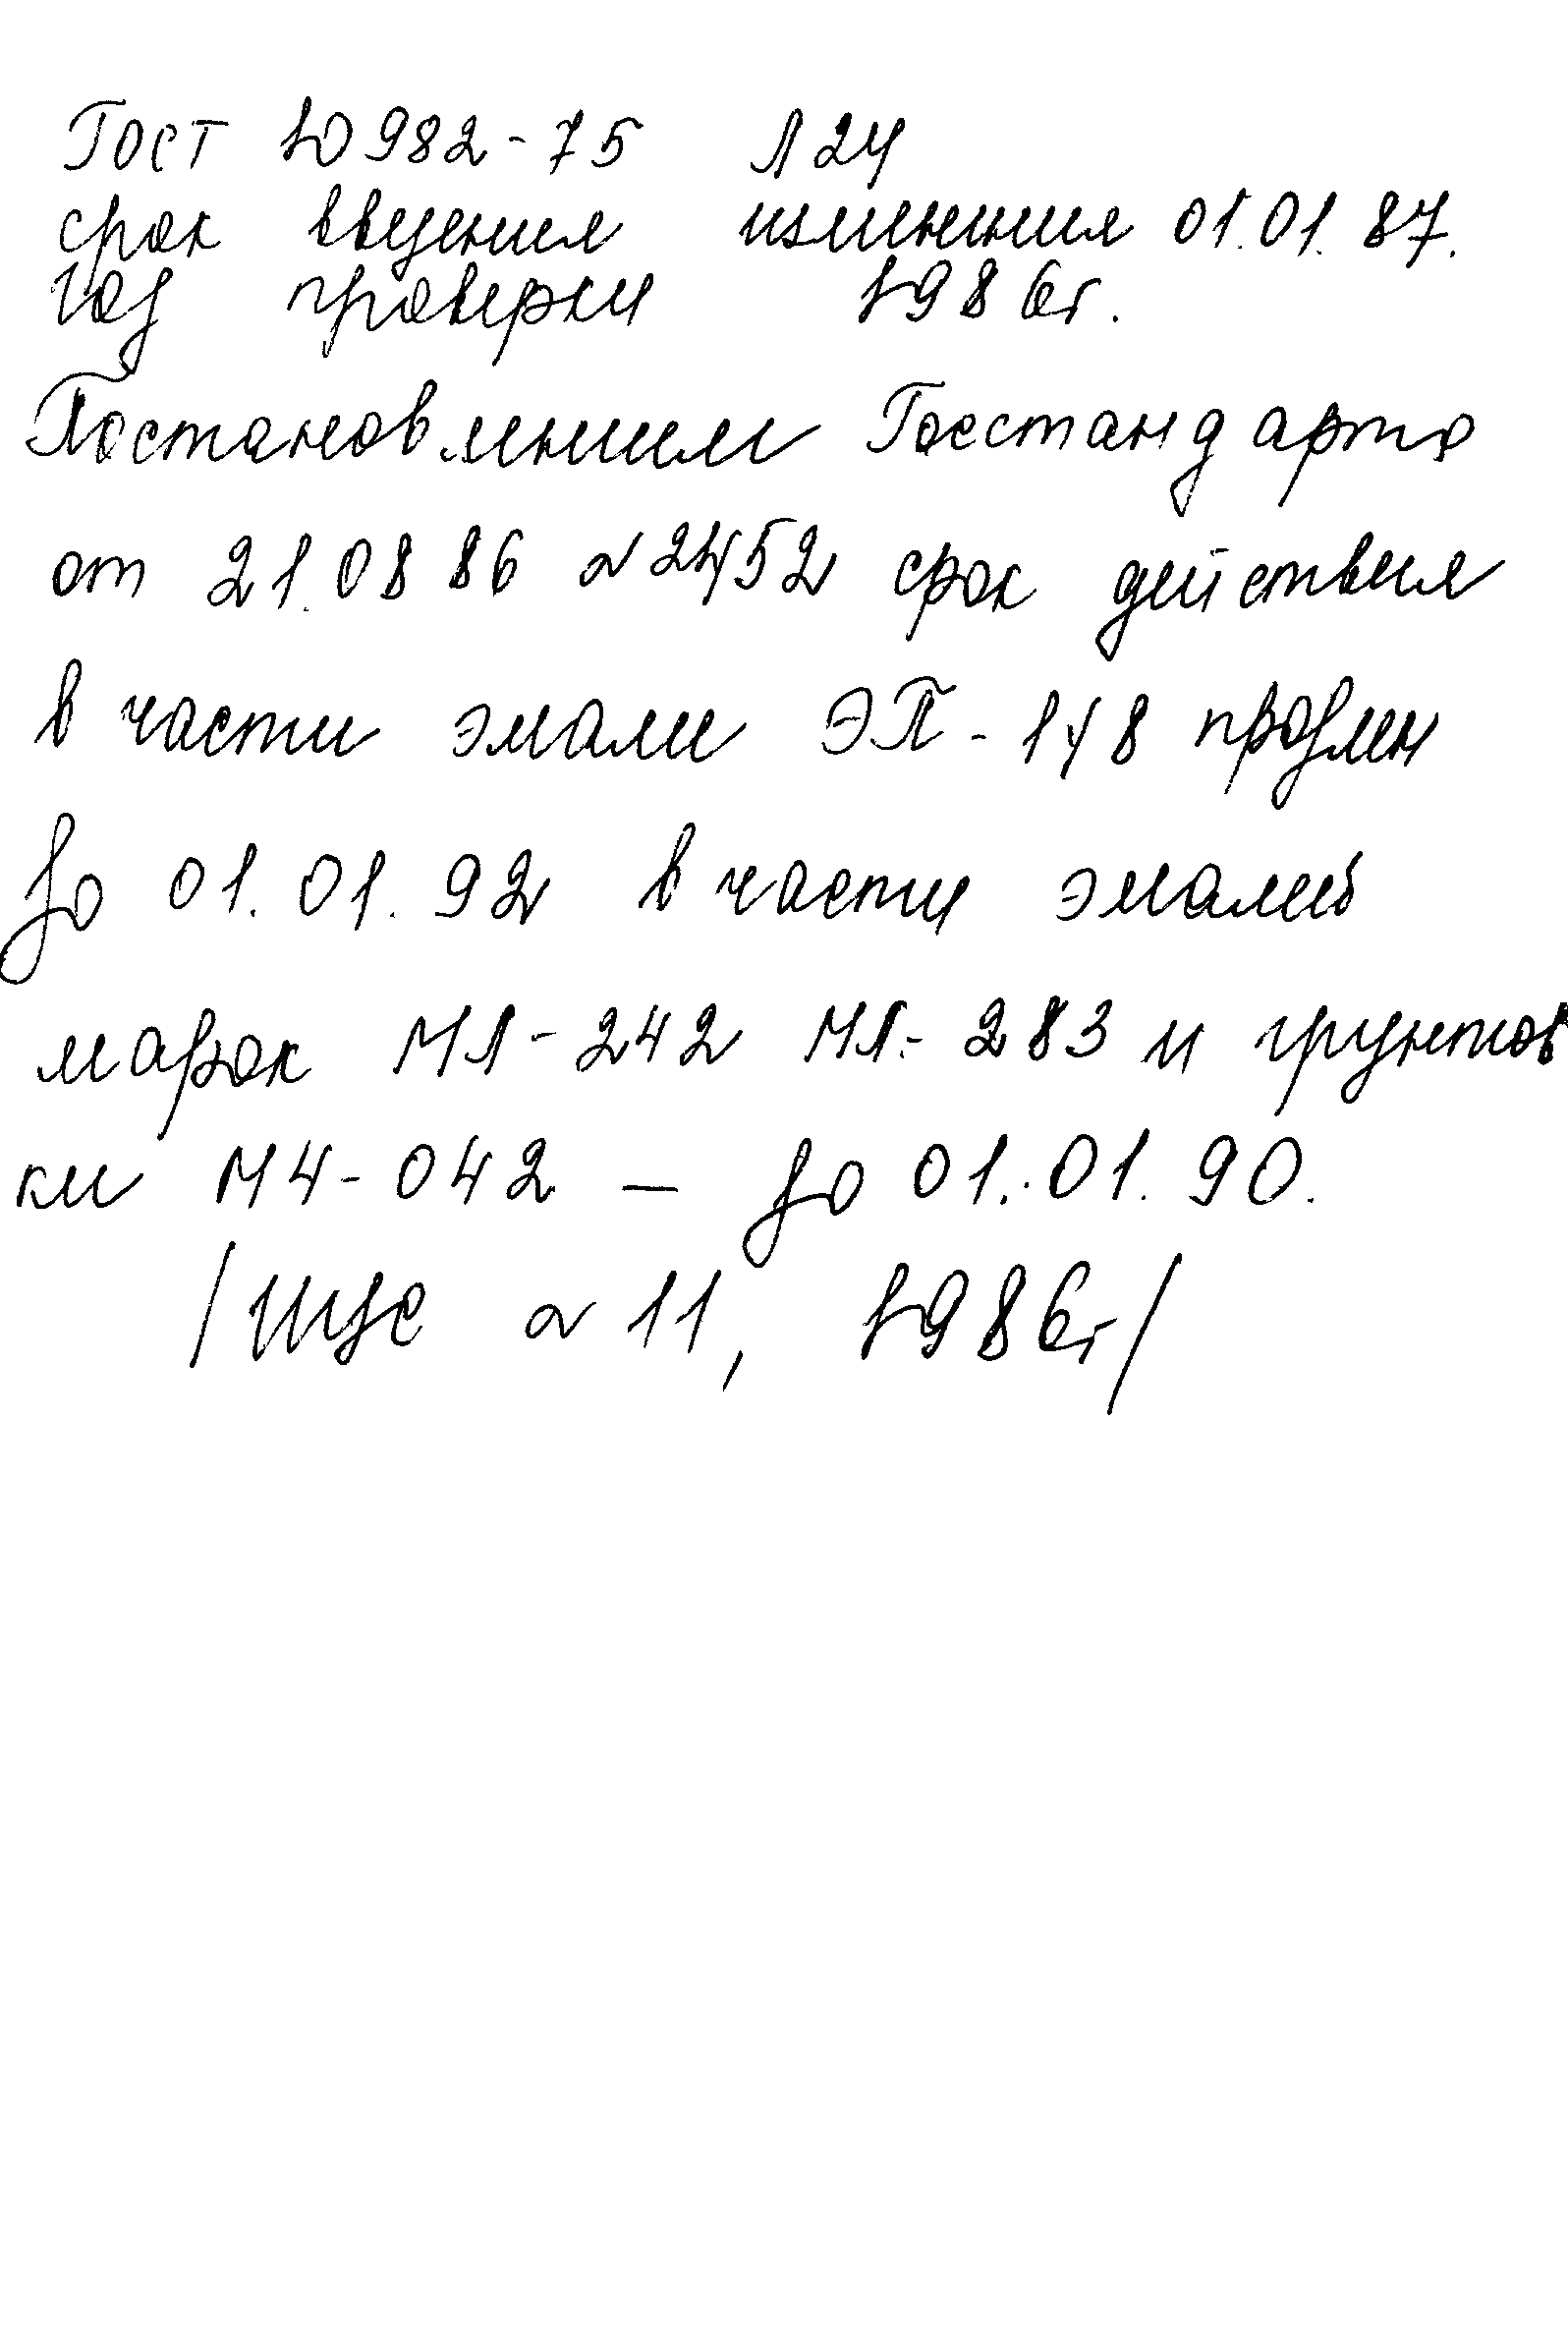 Гост 10982-75 Л24
срок введения изменения 01.01.87.
год проверки 1986г.
Постановлением Госстандарта
от 21.08 86 №2452 срок действия
в части эмали ЭП-148 продлен
до 01.01.92 в части эмалей
марок МЛ-242 МЛ-283 и грунтов
ки МЧ-042 — до 01.01.90.
/ИУС №11, 1986г/